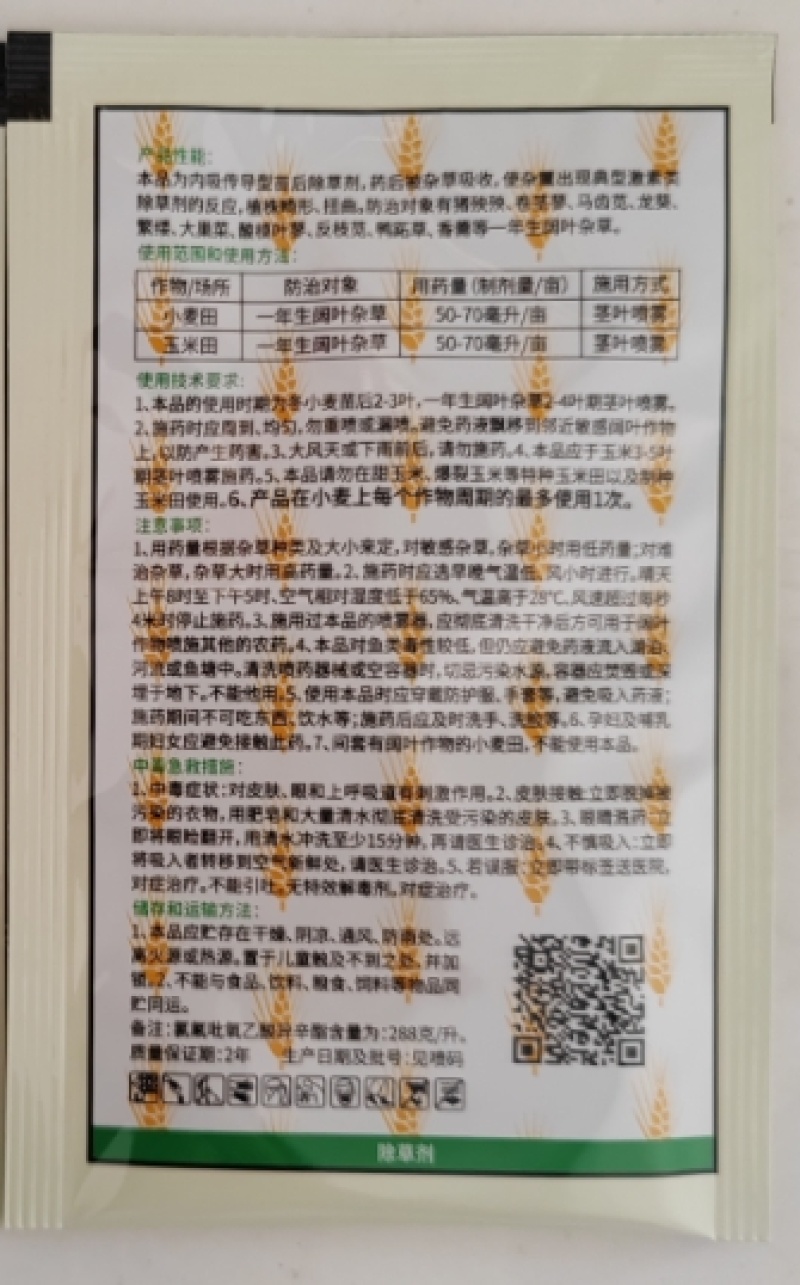 产品性能:
本品为内吸传导型苗后除草剂,药后被杂草吸收,使杂草出现典型激素类
除草剂的反应,植株畸形、扭曲。防治对象有猪殃殃、卷茎蓼、马齿苋、龙葵、
繁缕、大巢菜、酸模叶蓼、反枝苋、鸭跖草、香薷等一年生阔叶杂草。
使用范围和使用方法:
作物/场所 防治对象 用药量(制剂量/亩) 施用方式
小麦田 一年生阔叶杂草 50-70毫升/亩 茎叶喷雾
玉米田 一年生阔叶杂草 50-70毫升/亩 茎叶喷雾
使用技术要求:
1、本品的使用时期为冬小麦苗后2-3叶,一年生阔叶杂草2-4叶期茎叶喷雾。
2、施药时应周到、均匀,勿重喷或漏喷。避免药液飘移到邻近敏感阔叶作物
上,以防产生药害。3、大风天或下雨前后,请勿施药。4、本品应于玉米3-5叶
期茎叶喷雾施药。5、本品请勿在甜玉米、爆裂玉米等特种玉米田以及制种
玉米田使用。6、产品在小麦上每个作物周期的最多使用1次。
注意事项:
1、用药量根据杂草种类及大小来定,对敏感杂草,杂草小时用低药量;对难
治杂草,杂草大时用高药量。2、施药时应选早晚气温低、风小时进行。晴天
上午8时至下午5时、空气相对湿度低于65%、气温高于28℃、风速超过每秒
4米时停止施药。3、施用过本品的喷雾器,应彻底清洗干净后方可用于阔叶
作物喷施其他的农药。4、本品对鱼类毒性较低,但仍应避免药液流入湖泊、
河流或鱼塘中。清洗喷药器械或空容器时,切忌污染水源,容器应焚毁或深
埋于地下。不能他用。5、使用本品时应穿戴防护服、手套等,避免吸入药液;
施药期间不可吃东西、饮水等;施药后应及时洗手、洗脸等。6、孕妇及哺乳
期妇女应避免接触此药。7、间套有阔叶作物的小麦田,不能使用本品。
中毒急救措施:
1、中毒症状:对皮肤、眼和上呼吸道有刺激作用。2、皮肤接触:立即脱掉被
污染的衣物,用肥皂和大量清水彻底清洗受污染的皮肤。3、眼睛溅药:立
即将眼睑翻开,用清水冲洗至少15分钟,再请医生诊治。4、不慎吸入:立即
将吸入者转移到空气新鲜处,请医生诊治。5、若误服:立即带标签送医院,
对症治疗。不能引吐,无特效解毒剂。对症治疗。
储存和运输方法:
1、本品应贮存在干燥、阴凉、通风、防雨处。远
离火源或热源。置于儿童触及不到之处,并加
锁。2、不能与食品、饮料、粮食、饲料等物品同
贮同运。
备注:氯氟吡氧乙酸异辛酯含量为:288克/升。
质量保证期:2年 生产日期及批号:见喷码
除草剂